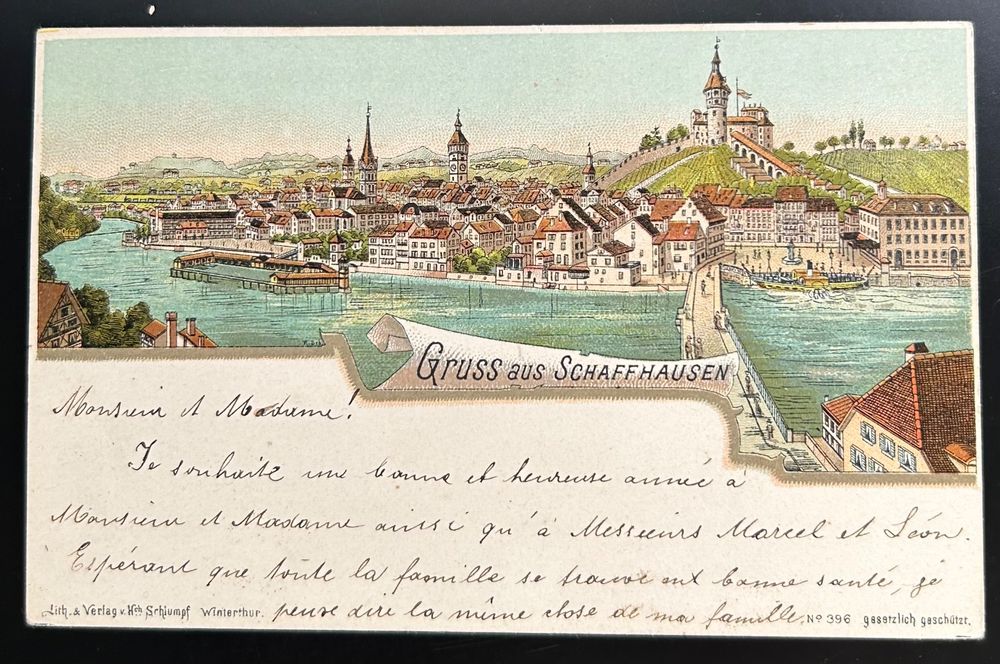 Gruss aus Schaffhausen
Monsieur et Madame!
Je souhaite une bonne et heureuse année à
Monsieur et Madame aussi qu'à Messieurs Marcel et Léon.
Espérant que toute la famille se trouve en bonne santé, je
peuse dire la même chose de ma famille.
Lith. & Verlag v. Hch Schlumpf Winterthur. No 396 gesetzlich geschützt.